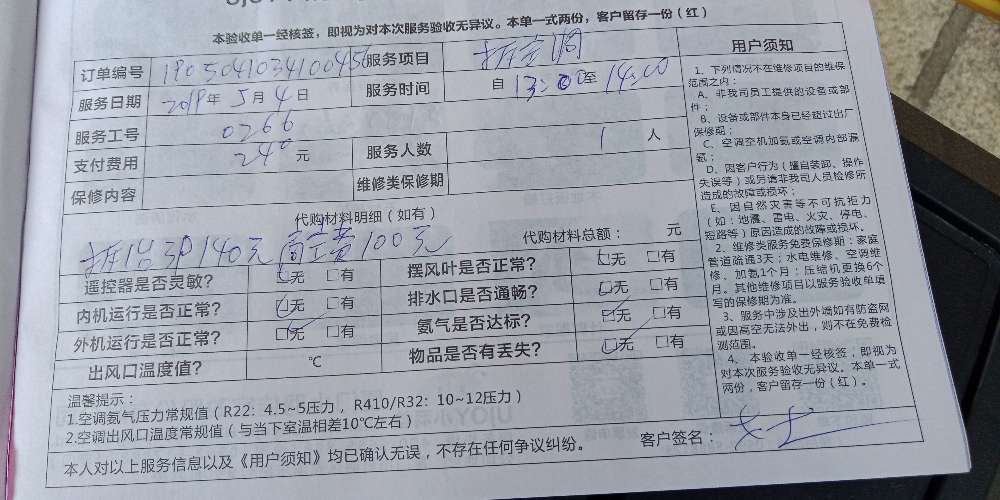 本验收单一经核签，即视为对本次服务验收无异议。本单一式两份，客户留存一份（红）
订单编号 190504103410045 服务项目 拆空调
服务日期 2019年5月4日 服务时间 自13:00至14:00
服务工号 0266
支付费用 240元 服务人数 1人
保修内容 维修类保修期
代购材料明细（如有）
代购材料总额： 元
拆1台3P140元 高空费100元
遥控器是否灵敏？ 口无 口有 摆风叶是否正常？ 口无 口有
内机运行是否正常？ 口无 口有 排水口是否通畅？ 口无 口有
外机运行是否正常？ 口无 口有 氨气是否达标？ 口无 口有
出风口温度值？ ℃ 物品是否有丢失？ 口无 口有
温馨提示：
1.空调氨气压力常规值（R22：4.5~5压力，R410/R32：10~12压力）
2.空调出风口温度常规值（与当下室温相差10℃左右）
本人对以上服务信息以及《用户须知》均已确认无误，不存在任何争议纠纷。
客户签名：
用户须知
1、下列情况不在维修项目的维保
范围之内：
A、非我司员工提供的设备或部
件；
B、设备或部件本身已经超过出厂
保修期；
C、空调空机加氨或空调内部漏
氨；
D、因客户行为（擅自装卸、操作
失误等）或另请非我司人员检修所
造成的故障或损坏；
E、因自然灾害等不可抗拒力
（如：地震、雷电、火灾、停电、
短路等）原因造成的故障或损坏。
2、维修类服务免费保修期：家庭
管道疏通3天；水电维修、空调维
修、加氨1个月；压缩机更换6个
月。其他维修项目以服务验收单填
写的保修期为准。
3、服务中涉及出外墙如有防盗网
或因高空无法外出，则不在免费检
测范围。
4、本验收单一经核签，即视为
对本次服务验收无异议。本单一式
两份，客户留存一份（红）。